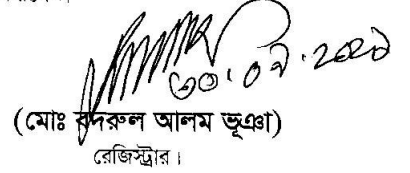 ৩০.০৯.২০২১
(মোঃ বদরুল আলম ভূঞা)
রেজিস্ট্রার।